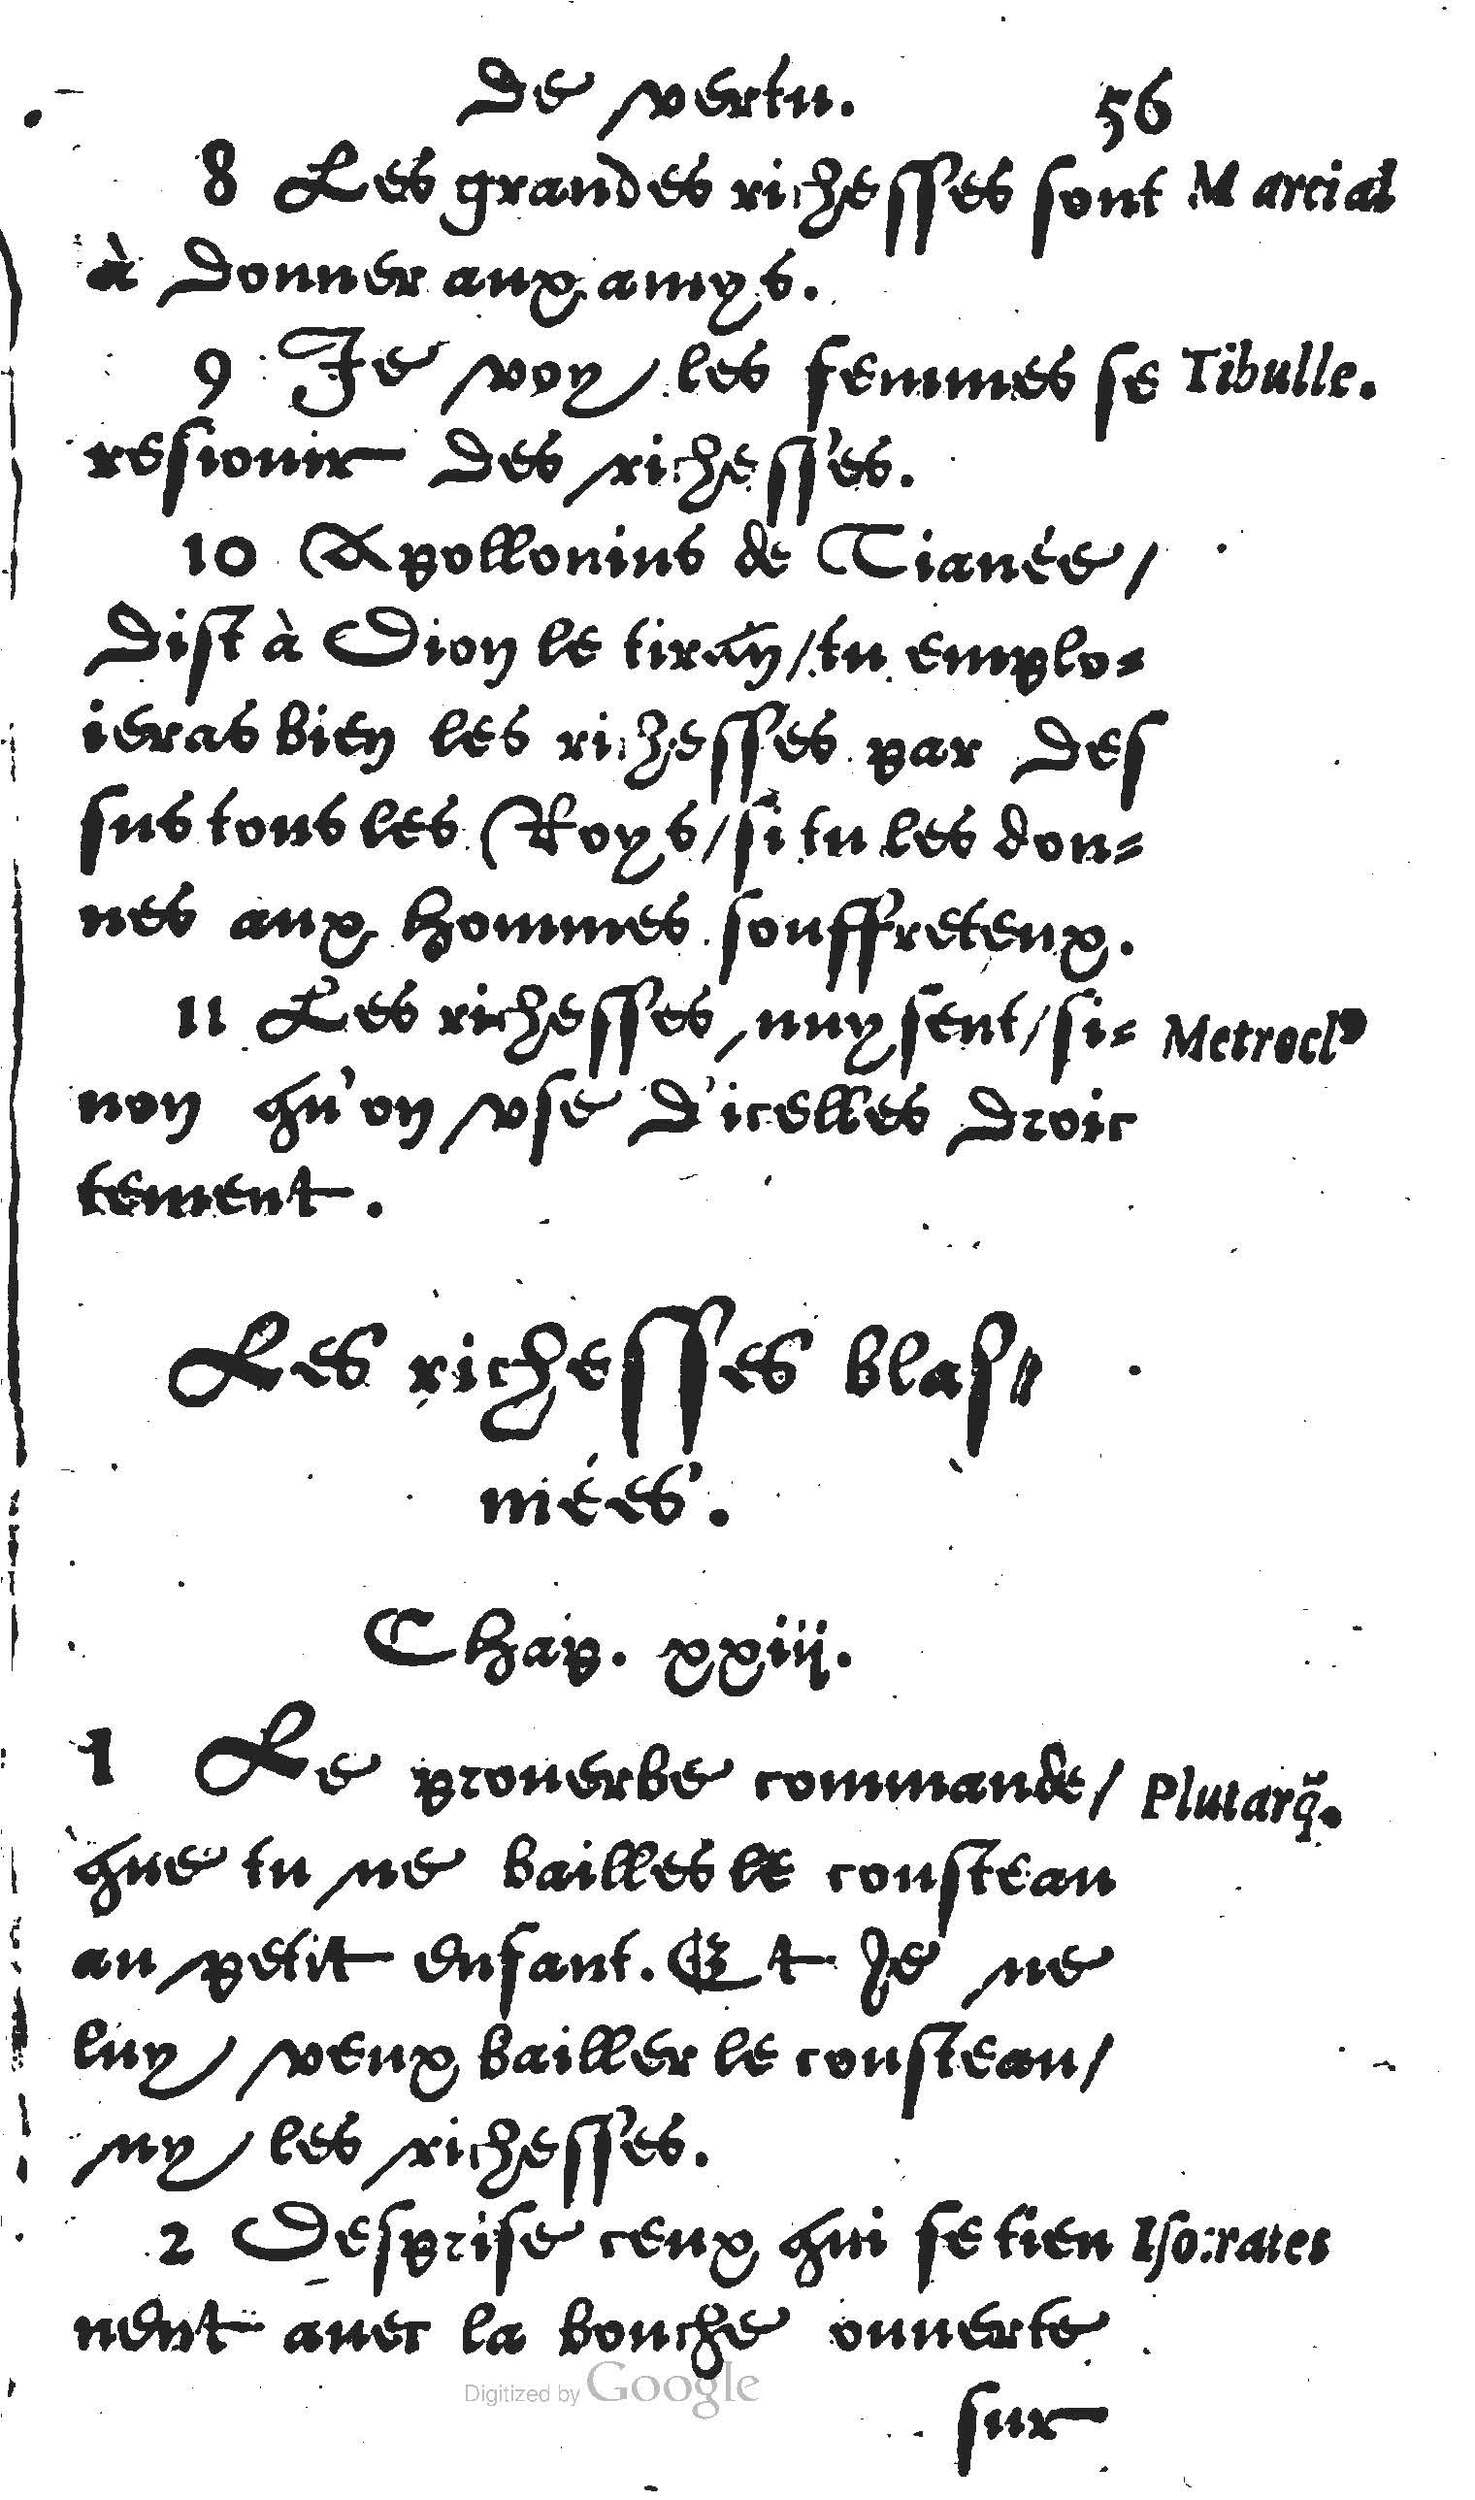 de vertu. 56
8 Les grandes richesses sont Marcial
à donner aux amys.
9 Je voy les femmes se Tibulle.
resiouir des richesses.
10 Apollonius de Tianée/
dist à Dion le tirãn/tu emplo-
ieras bien les richesses par des
sus tous les Roys/si tu les don-
nes aux hommes souffreteux.
11 Les richesses nuysent/si- Metrocl⁹
non qu'on vse d'icelles droic
tement.
Les richesses blas-
mées.
Chap. xxiij.
1 Le prouerbe commande/ Plutarq̃.
que tu ne bailles le cousteau
au petit enfant. Et Je ne
luy veux bailler le cousteau/
ny les richesses.
2 Desprise ceux qui se tien Isocrates
nent auec la bouche ouuerte
Digitized by Google
sur